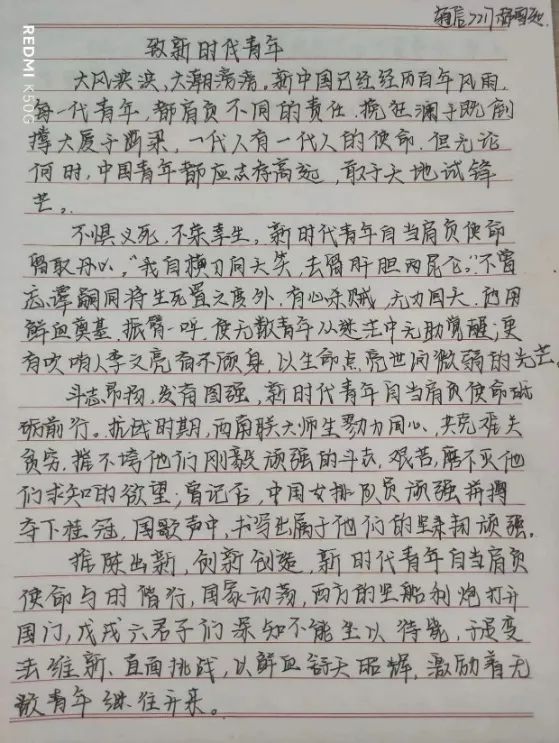 通信2217
REDMI K50G
致新时代青年
大风泱泱,大潮滂滂。新中国已经经历百年风雨,
每一代青年,都肩负不同的责任.挽狂澜于既倒
撑大厦于断梁,一代人有一代人的使命.但无论
何时,中国青年都应志存高远,敢于天地试锋
芒。
不惧义死,不荣幸生。新时代青年自当肩负使命
留取丹心。“我自横刀向天笑,去留肝胆两昆仑。”不曾
忘谭嗣同将生死置之度外,有心杀贼,无力回天.
鲜血奠基.振臂一呼,使无数青年从迷茫中无助觉醒;更
有吹哨人李文亮奋不顾身,以生命点亮世间微弱的光芒。
斗志昂扬,发奋图强,新时代青年自当肩负使命砥
砺前行。抗战时期,西南联大师生勠力同心,共克难关
贫穷,摧不垮他们刚毅顽强的斗志,艰苦,磨不灭他
们求知的欲望;曾记否,中国女排队员顽强拼搏
夺下桂冠,国歌声中,书写出属于他们的坚韧顽强。
推陈出新,创新创造,新时代青年自当肩负
使命与时偕行,国家动荡,西方的坚船利炮打开
国门,戊戌六君子们深知不能坐以待毙,于是变
法维新、直面挑战,以鲜血衍天昭辉,激励着无
数青年继往开来。